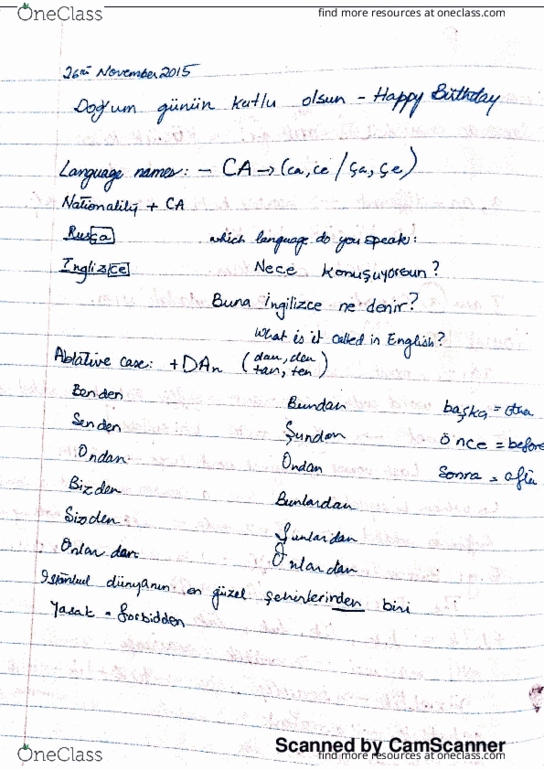 OneClass
find more resources at oneclass.com
26th November 2015
Doğum günün kutlu olsun - Happy Birthday
Language names: - CA → (ca, ce / ça, çe)
Nationality + CA
Rusça which language do you speak:
İnglizce Nece konuşuyorsun?
Buna İngilizce ne denir?
What is it called in English?
Ablative case: +DAn (dan, den
tan, ten)
Benden Bundan başka = other
Senden Şundan önce = before
Ondan Ondan Sonra = after
Bizden Bunlardan
Sizden Şunlardan
Onlar dan Onlardan
İstanbul dünyanın en güzel şehirlerinden biri
Yasak = forbidden
Scanned by CamScanner
OneClass
find more resources at oneclass.com